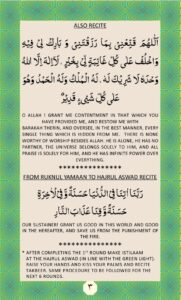 ALSO RECITE
اَللّٰهُمَّ قَنِّعْنِيْ بِمَا رَزَقْتَنِيْ وَ بَارِكْ لِيْ فِيْهِ
وَاخْلُفْ عَلٰى كُلِّ غَائِبَةٍ لِّيْ بِخَيْرٍ۔ لَا اِلٰهَ اِلَّا اللهُ
وَحْدَهٗ لَا شَرِيْكَ لَهٗ۔ لَهُ الْمُلْكُ وَلَهُ الْحَمْدُ وَهُوَ
عَلٰى كُلِّ شَيْءٍ قَدِيْرٌ
O ALLAH ! GRANT ME CONTENTMENT IN THAT WHICH YOU
HAVE PROVIDED ME, AND BESTOW ME WITH
BARAKAH THEREIN, AND OVERSEE, IN THE BEST MANNER, EVERY
SINGLE THING WHICH IS HIDDEN FROM ME. THERE IS NONE
WORTHY OF WORSHIP BESIDES ALLAH. HE IS ALONE, HE HAS NO
PARTNER, THE UNIVERSE BELONGS SOLELY TO HIM, AND ALL
PRAISE IS SOLELY FOR HIM, AND HE HAS INFINITE POWER OVER
EVERYTHING.
********************
FROM RUKNUL YAMAAN TO HAJRUL ASWAD RECITE
رَبَّنَا اٰتِنَا فِي الدُّنْيَا حَسَنَةً وَّ فِي الْاٰخِرَةِ
حَسَنَةً وَّ قِنَا عَذَابَ النَّارِ
OUR SUSTAINER! GRANT US GOOD IN THIS WORLD AND GOOD
IN THE HEREAFTER, AND SAVE US FROM THE PUNISHMENT OF
THE FIRE.
********************
* AFTER COMPLETING THE 1ST ROUND MAKE ISTILAAM
AT THE HAJRUL ASWAD (IN LINE WITH THE GREEN LIGHT).
RAISE YOUR HANDS AND KISS YOUR PALMS AND RECITE
TAKBEER. SAME PROCEDURE TO BE FOLLOWED FOR THE
NEXT 6 ROUNDS.
٣